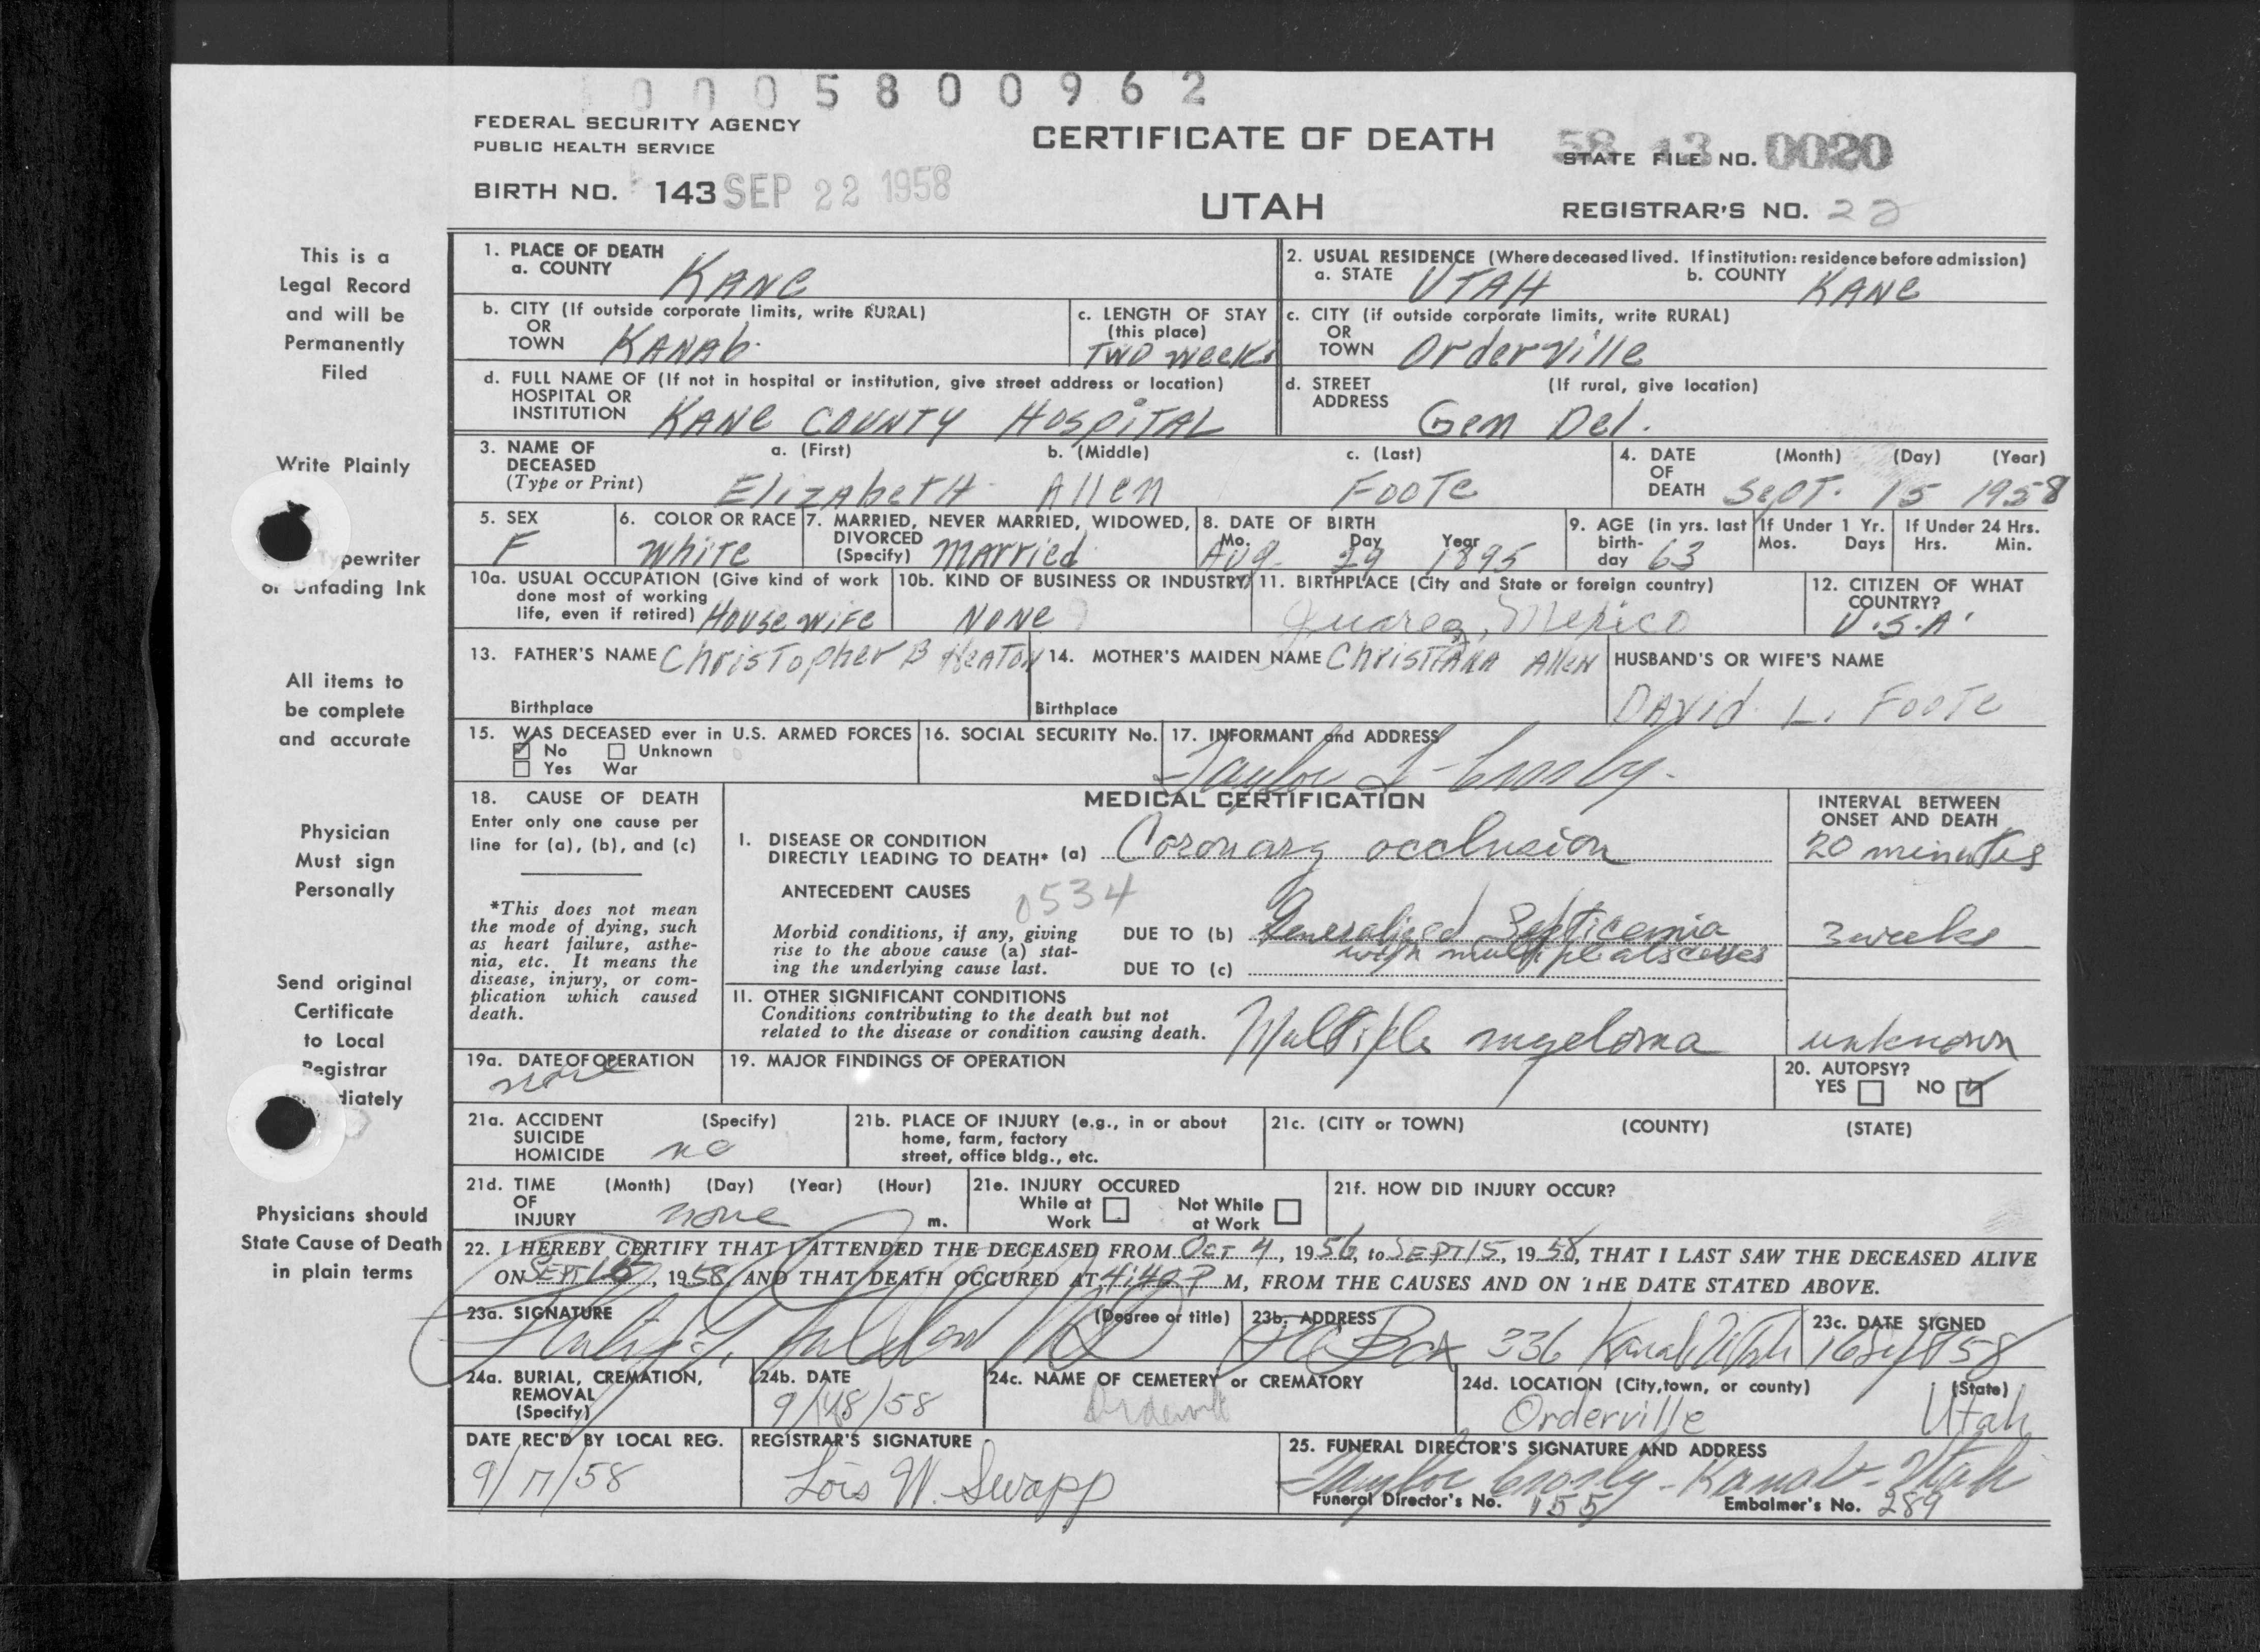 0005800962
FEDERAL SECURITY AGENCY
PUBLIC HEALTH SERVICE
CERTIFICATE OF DEATH
58 13
STATE FILE NO. 0020
BIRTH NO. 143 SEP 22 1958
UTAH
REGISTRAR'S NO. 22
This is a
Legal Record
and will be
Permanently
Filed
Write Plainly
Typewriter
or Unfading Ink
All items to
be complete
and accurate
Physician
Must sign
Personally
Send original
Certificate
to Local
Registrar
Immediately
Physicians should
State Cause of Death
in plain terms
1. PLACE OF DEATH
a. COUNTY KANE
2. USUAL RESIDENCE (Where deceased lived. If institution: residence before admission)
a. STATE UTAH b. COUNTY KANE
b. CITY (If outside corporate limits, write RURAL)
OR
TOWN KANAb.
c. LENGTH OF STAY
(this place)
TWO Weeks
c. CITY (if outside corporate limits, write RURAL)
OR
TOWN Orderville
d. FULL NAME OF (If not in hospital or institution, give street address or location)
HOSPITAL OR
INSTITUTION KANE COUNTY HOSPITAL
d. STREET (If rural, give location)
ADDRESS Gen Del.
3. NAME OF
DECEASED
(Type or Print)
a. (First) b. (Middle) c. (Last)
ElizAbeTH Allen FooTe
4. DATE (Month) (Day) (Year)
OF
DEATH SepT. 15 1958
5. SEX
F
6. COLOR OR RACE
White
7. MARRIED, NEVER MARRIED, WIDOWED,
DIVORCED
(Specify) Married
8. DATE OF BIRTH
Mo. Day Year
Aug. 29 1895
9. AGE (in yrs. last
birth-
day 63
If Under 1 Yr.
Mos. Days
If Under 24 Hrs.
Hrs. Min.
10a. USUAL OCCUPATION (Give kind of work
done most of working
life, even if retired) Housewife
10b. KIND OF BUSINESS OR INDUSTRY
NONE
11. BIRTHPLACE (City and State or foreign country)
Juarez, Mexico
12. CITIZEN OF WHAT
COUNTRY?
U.S.A.
13. FATHER'S NAME Christopher B Heaton
Birthplace
14. MOTHER'S MAIDEN NAME Christiana Allen
Birthplace
HUSBAND'S OR WIFE'S NAME
David L. Foote
15. WAS DECEASED ever in U.S. ARMED FORCES
No Unknown
Yes War
16. SOCIAL SECURITY No.
17. INFORMANT and ADDRESS
Taylor L Crosby.
18. CAUSE OF DEATH
Enter only one cause per
line for (a), (b), and (c)
*This does not mean
the mode of dying, such
as heart failure, asthe-
nia, etc. It means the
disease, injury, or com-
plication which caused
death.
MEDICAL CERTIFICATION
I. DISEASE OR CONDITION
DIRECTLY LEADING TO DEATH* (a) Coronary occlusion
ANTECEDENT CAUSES
0534
Morbid conditions, if any, giving
rise to the above cause (a) stat-
ing the underlying cause last.
DUE TO (b) Generalized Septicemia
with multiple abscesses
DUE TO (c)
INTERVAL BETWEEN
ONSET AND DEATH
20 minutes
3 weeks
II. OTHER SIGNIFICANT CONDITIONS
Conditions contributing to the death but not
related to the disease or condition causing death.
Multiple myeloma
unknown
19a. DATE OF OPERATION
none
19. MAJOR FINDINGS OF OPERATION
20. AUTOPSY?
YES NO
21a. ACCIDENT (Specify)
SUICIDE
HOMICIDE no
21b. PLACE OF INJURY (e.g., in or about
home, farm, factory
street, office bldg., etc.
21c. (CITY or TOWN) (COUNTY) (STATE)
21d. TIME (Month) (Day) (Year) (Hour)
OF
INJURY none m.
21e. INJURY OCCURED
While at Not While
Work at Work
21f. HOW DID INJURY OCCUR?
22. I HEREBY CERTIFY THAT I ATTENDED THE DECEASED FROM OCT 4, 1956, to SEPT 15, 1958, THAT I LAST SAW THE DECEASED ALIVE
ON SEPT 15, 1958, AND THAT DEATH OCCURED AT 4:40 P M, FROM THE CAUSES AND ON THE DATE STATED ABOVE.
23a. SIGNATURE (Degree or title)
MD
23b. ADDRESS
Box 336 Kanab Utah
23c. DATE SIGNED
16 Sept 58
24a. BURIAL, CREMATION,
REMOVAL
(Specify)
24b. DATE
9/18/58
24c. NAME OF CEMETERY or CREMATORY
Orderville
24d. LOCATION (City, town, or county) (State)
Orderville Utah
DATE REC'D BY LOCAL REG.
9/17/58
REGISTRAR'S SIGNATURE
Lois W. Swapp
25. FUNERAL DIRECTOR'S SIGNATURE AND ADDRESS
Taylor Crosby - Kanab - Utah
Funeral Director's No. 155 Embalmer's No. 289